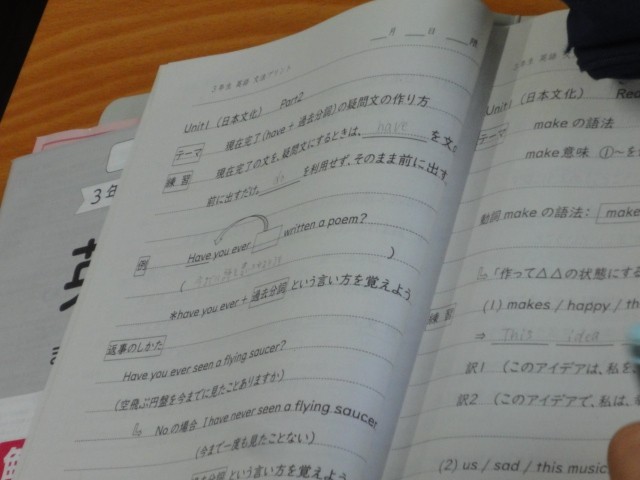 3年生 英語 文法プリント
月 日
Unit1 (日本文化) Part2
テーマ 現在完了(have + 過去分詞)の疑問文の作り方
練習 現在完了の文を、疑問文にするときは、 have を文
前に出すだけ。 を利用せず、そのまま前に出す
Have you ever written a poem?
例
( )
*have you ever + 過去分詞 という言い方を覚えよう
返事のしかた
Have you ever seen a flying saucer?
(空飛ぶ円盤を今までに見たことありますか)
Noの場合 I have never seen a flying saucer
(今まで一度も見たことない)
という言い方を覚えよう
3年
Unit1 (日本文化) Rea
テーマ make の語法
make 意味 ①~を
動詞 make の語法: make
「作って△△の状態にする
練習 (1) makes / happy / th
⇒ This idea
訳1 (このアイデアは、私を
訳2 (このアイデアで、私は、
(2) us / sad / this music